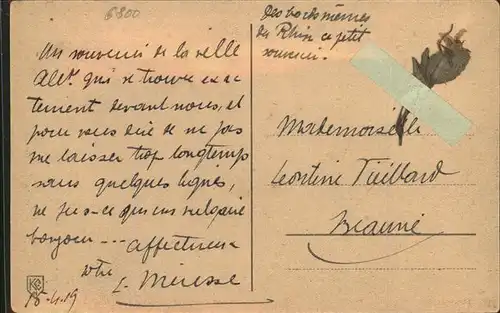 6800
Un souvenir de la ville
All. qui se trouve exac-
tement devant nous, et
pour vous dire de ne pas
me laisser trop longtemps
sans quelques lignes,
ne fus-ce qu'un vulgaire
bonjour --- affectueux
votre
L. Meresse
18-4-19
des bords mêmes
du Rhin ce petit
souvenir.
Mademoiselle
Léontine Tieillard
Beaune